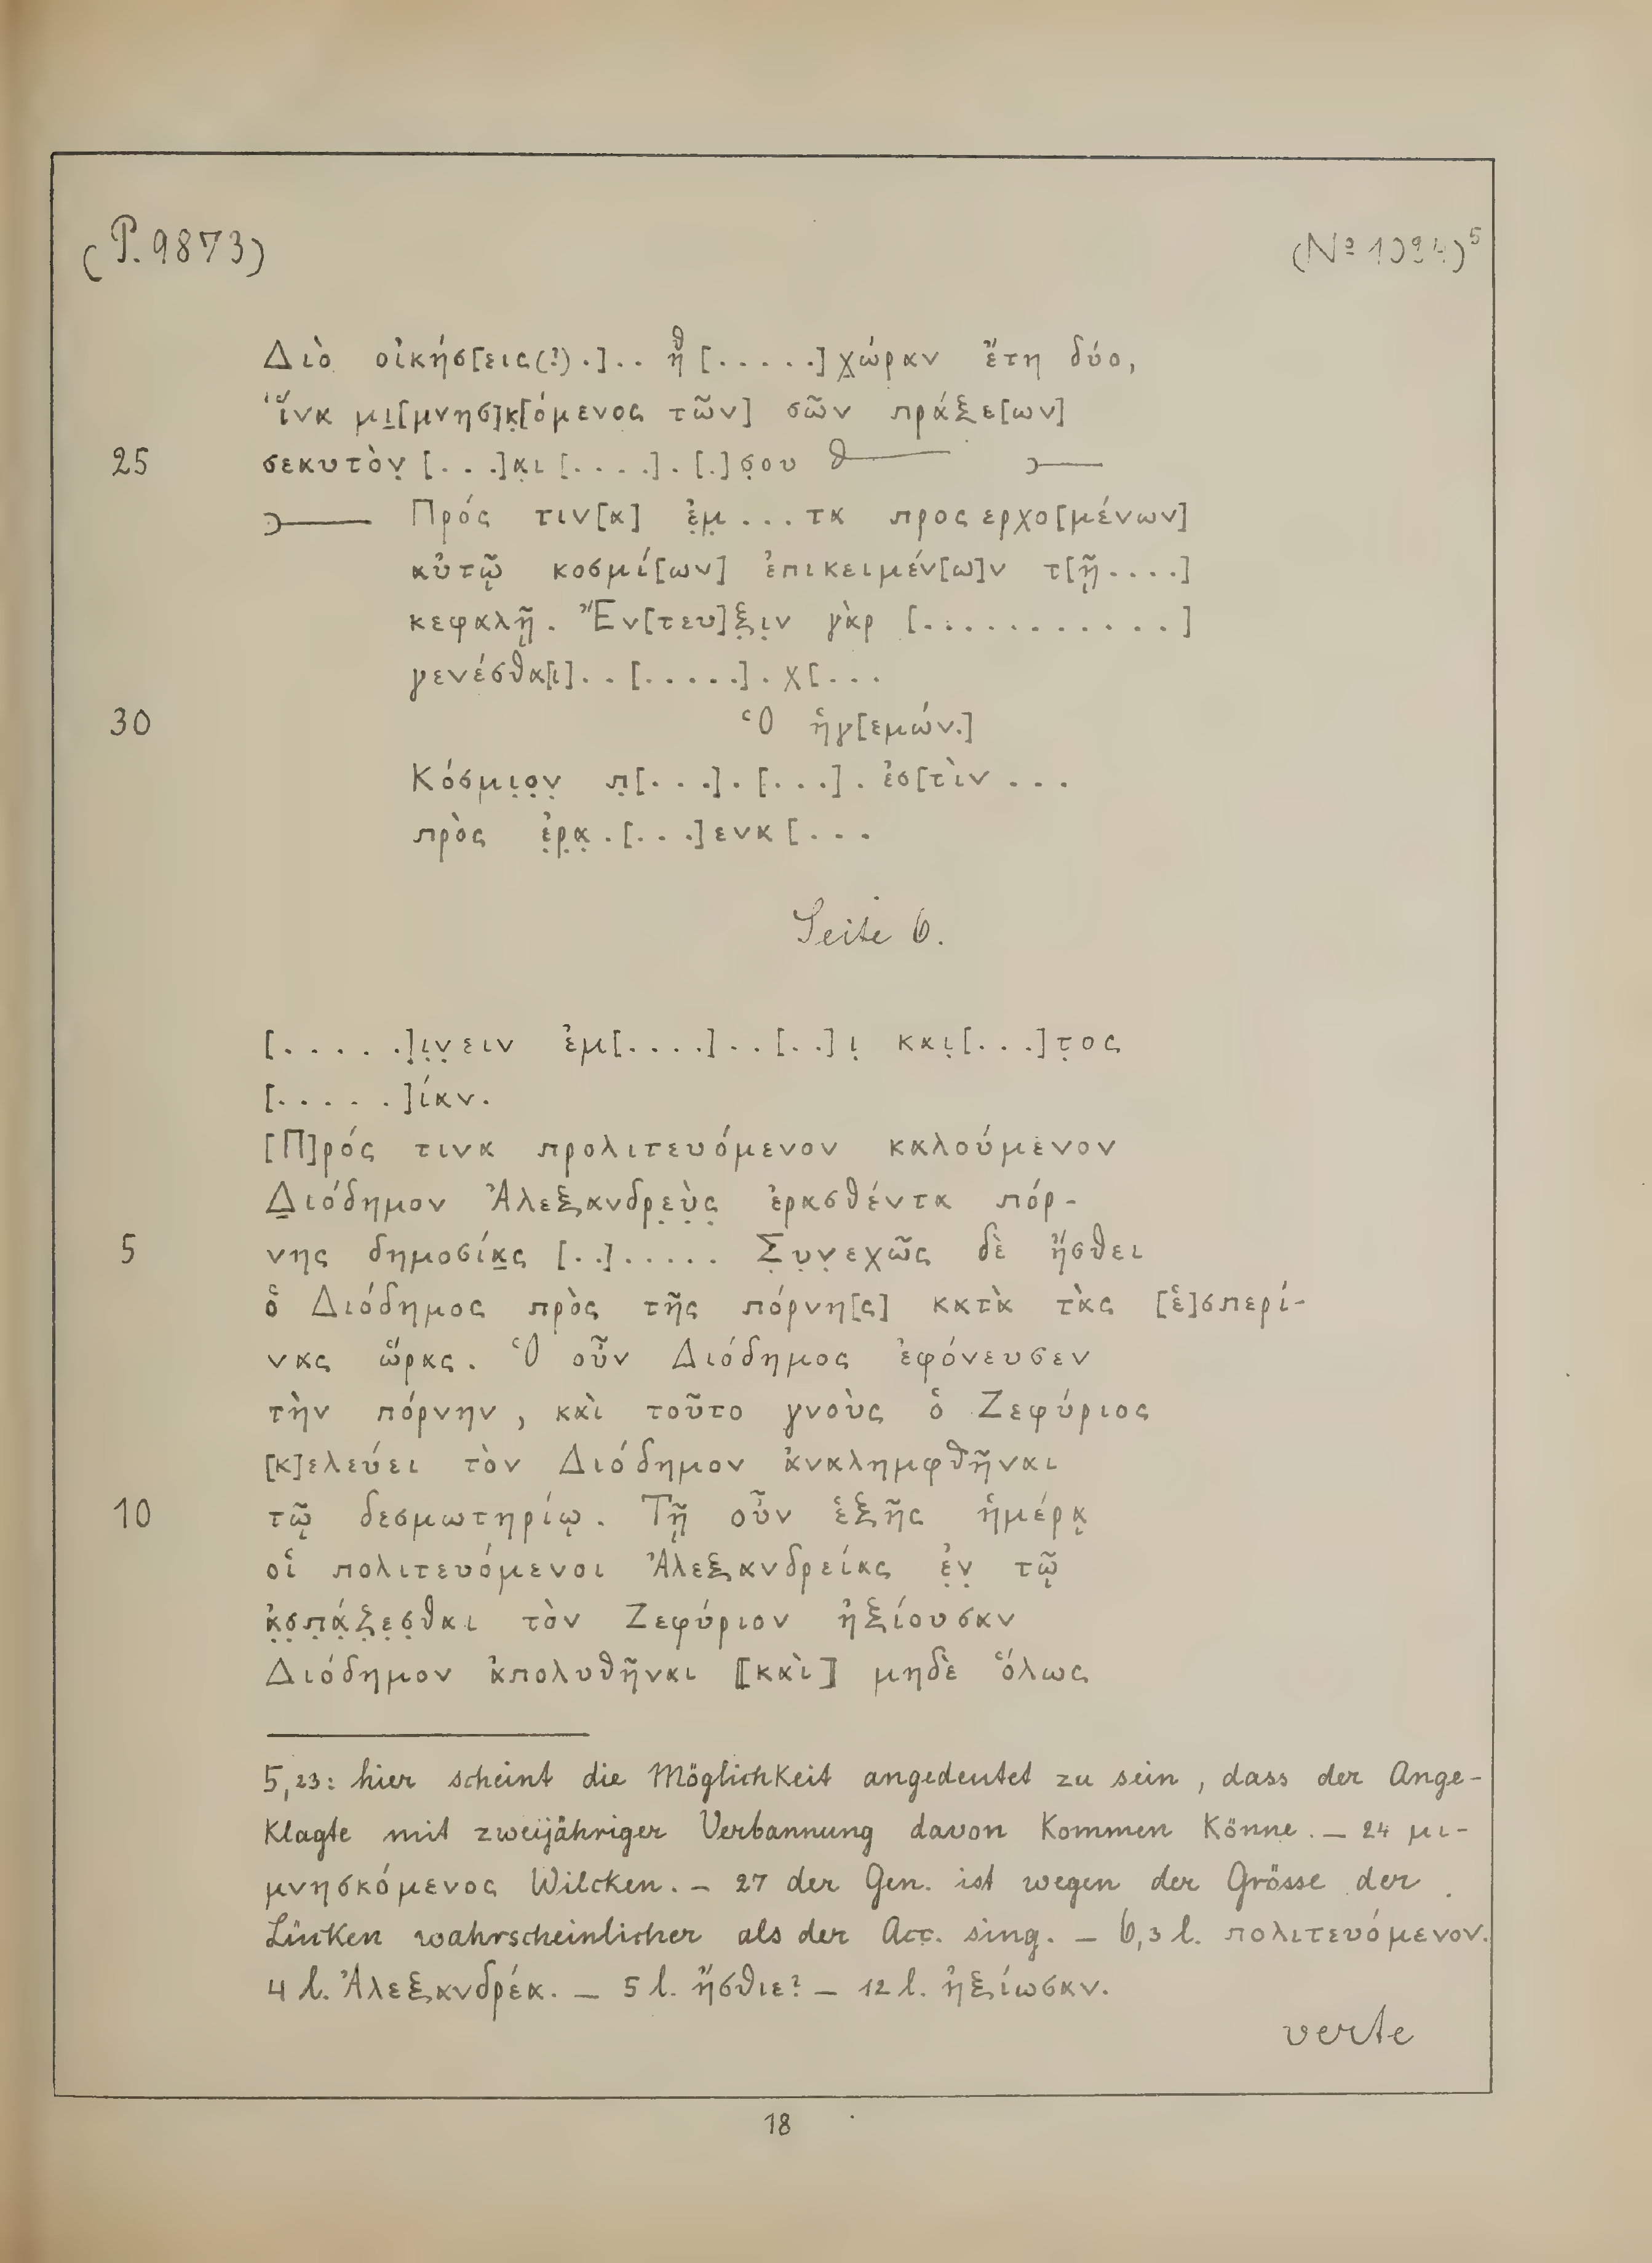 (P. 9873)
(No 1024)⁵
Διὸ οἰκήσ[εις(?) .]. . ἢ θ [. . . . .] χώραν ἔτη δύο,
ἵνα μι[μνησ]κ̣[όμενος τῶν] σῶν πράξε[ων]
25 σεαυτὸν̣ [. . .]α̣ι [. . . .] . [.] σ̣ου
Πρός τιν[α] ἐ̣μ̣ . . . τα προσερχο[μένων]
αὐτῷ κοσμί[ων] ἐπικειμέν[ω]ν τ[ῇ . . . .]
κεφαλῇ. Ἔν[τευ]ξ̣ι̣ν γὰρ [. . . . . . . . . . .]
γενέσθα[ι] . . [. . . . .] . χ[. . .
30 Ὁ ἡγ[εμών.]
Κόσμι̣ο̣ν̣ π̣[. . .] . [. . .] . ἐσ[τὶν . . .
πρὸς ἐ̣ρ̣α̣ . [. . .] ενα [. . .
Seite 6.
[. . . . . .]ι̣ν̣ειν ἐμ[. . . .] . . [. .] ι̣ καὶ̣[. . .] τ̣ος
[. . . . .]ίαν.
[Π]ρός τινα προλιτευόμενον καλούμενον
Διόδημον Ἀλεξανδρε̣ὺ̣ς̣ ἐρασθέντα πόρ-
5 νης δημοσίας [. .] . . . . . Σ̣υ̣ν̣εχῶς δὲ ἤσθει
ὁ Διόδημος πρὸς τῆς πόρνη[ς] κατὰ τὰς [ἑ]σπερί-
νας ὥρας. Ὁ οὖν Διόδημος ἐφόνευσεν
τὴν πόρνην, καὶ τοῦτο γνοὺς ὁ Ζεφύριος
[κ]ελεύει τὸν Διόδημον ἀναλημφθῆναι
10 τῷ δεσμωτηρίῳ. Τῇ οὖν ἑξῆς ἡμέρᾳ
οἱ πολιτευόμενοι Ἀλεξανδρείας ἐ̣ν̣ τῷ
ἀ̣σ̣π̣ά̣ζ̣ε̣σ̣θαι τὸν Ζεφύριον ἠξίουσαν
Διόδημον ἀπολυθῆναι ⟦καὶ⟧ μηδὲ ὅλως
5,23: hier scheint die Möglichkeit angedeutet zu sein, dass der Ange-
klagte mit zweijähriger Verbannung davon kommen könne. — 24 μι-
μνησκόμενος Wilcken. — 27 der Gen. ist wegen der Grösse der
Lücken wahrscheinlicher als der Acc. sing. — 6,3 l. πολιτευόμενον.
4 l. Ἀλεξανδρέα. — 5 l. ἤσθιε? — 12 l. ἠξίωσαν.
verte
18